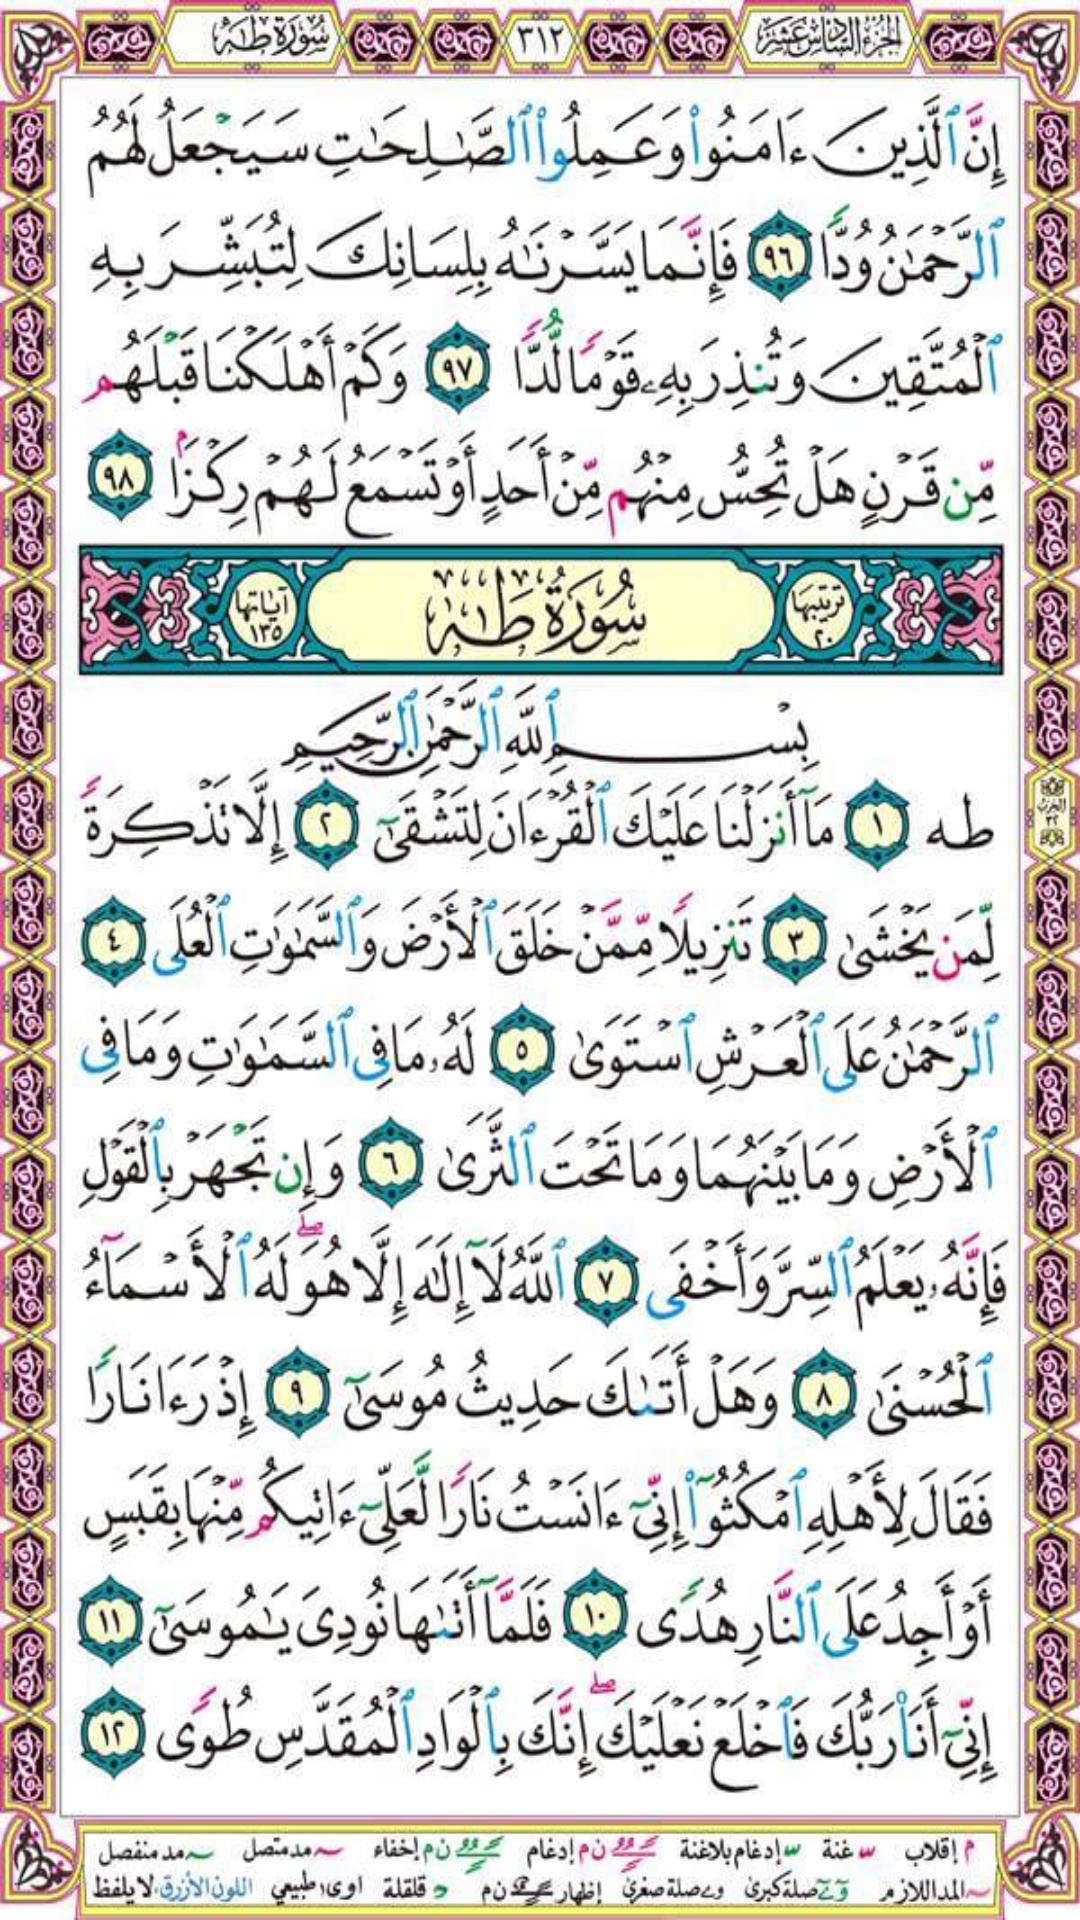 الجزء السادس عشر ٣١٢ سورة طه
إِنَّ ٱلَّذِينَ ءَامَنُوا۟ وَعَمِلُوا۟ ٱلصَّـٰلِحَـٰتِ سَيَجْعَلُ لَهُمُ
ٱلرَّحْمَـٰنُ وُدًّا ٩٦ فَإِنَّمَا يَسَّرْنَـٰهُ بِلِسَانِكَ لِتُبَشِّرَ بِهِ
ٱلْمُتَّقِينَ وَتُنذِرَ بِهِۦ قَوْمًا لُّدًّا ٩٧ وَكَمْ أَهْلَكْنَا قَبْلَهُم
مِّن قَرْنٍ هَلْ تُحِسُّ مِنْهُم مِّنْ أَحَدٍ أَوْ تَسْمَعُ لَهُمْ رِكْزًۢا ٩٨
ترتيبها ٢٠ سُورَةُ طه آياتها ١٣٥
بِسْمِ ٱللَّهِ ٱلرَّحْمَـٰنِ ٱلرَّحِيمِ
طه ١ مَآ أَنزَلْنَا عَلَيْكَ ٱلْقُرْءَانَ لِتَشْقَىٰٓ ٢ إِلَّا تَذْكِرَةً
لِّمَن يَخْشَىٰ ٣ تَنزِيلًا مِّمَّنْ خَلَقَ ٱلْأَرْضَ وَٱلسَّمَـٰوَٰتِ ٱلْعُلَى ٤
ٱلرَّحْمَـٰنُ عَلَى ٱلْعَرْشِ ٱسْتَوَىٰ ٥ لَهُۥ مَا فِى ٱلسَّمَـٰوَٰتِ وَمَا فِى
ٱلْأَرْضِ وَمَا بَيْنَهُمَا وَمَا تَحْتَ ٱلثَّرَىٰ ٦ وَإِن تَجْهَرْ بِٱلْقَوْلِ
فَإِنَّهُۥ يَعْلَمُ ٱلسِّرَّ وَأَخْفَى ٧ ٱللَّهُ لَآ إِلَـٰهَ إِلَّا هُوَ ۖ لَهُ ٱلْأَسْمَآءُ
ٱلْحُسْنَىٰ ٨ وَهَلْ أَتَىٰكَ حَدِيثُ مُوسَىٰٓ ٩ إِذْ رَءَا نَارًا
فَقَالَ لِأَهْلِهِ ٱمْكُثُوٓا۟ إِنِّىٓ ءَانَسْتُ نَارًا لَّعَلِّىٓ ءَاتِيكُم مِّنْهَا بِقَبَسٍ
أَوْ أَجِدُ عَلَى ٱلنَّارِ هُدًى ١٠ فَلَمَّآ أَتَىٰهَا نُودِىَ يَـٰمُوسَىٰٓ ١١
إِنِّىٓ أَنَا۠ رَبُّكَ فَٱخْلَعْ نَعْلَيْكَ ۖ إِنَّكَ بِٱلْوَادِ ٱلْمُقَدَّسِ طُوًى ١٢
الحزب ٣٢
م إقلاب غنة إدغام بلاغنة ن م إدغام ن م إخفاء مد متصل مد منفصل
المد اللازم صلة كبرى و ے صلة صغرى إظهار ن م قلقلة ا و ى طبيعي اللون الأزرق لا يلفظ